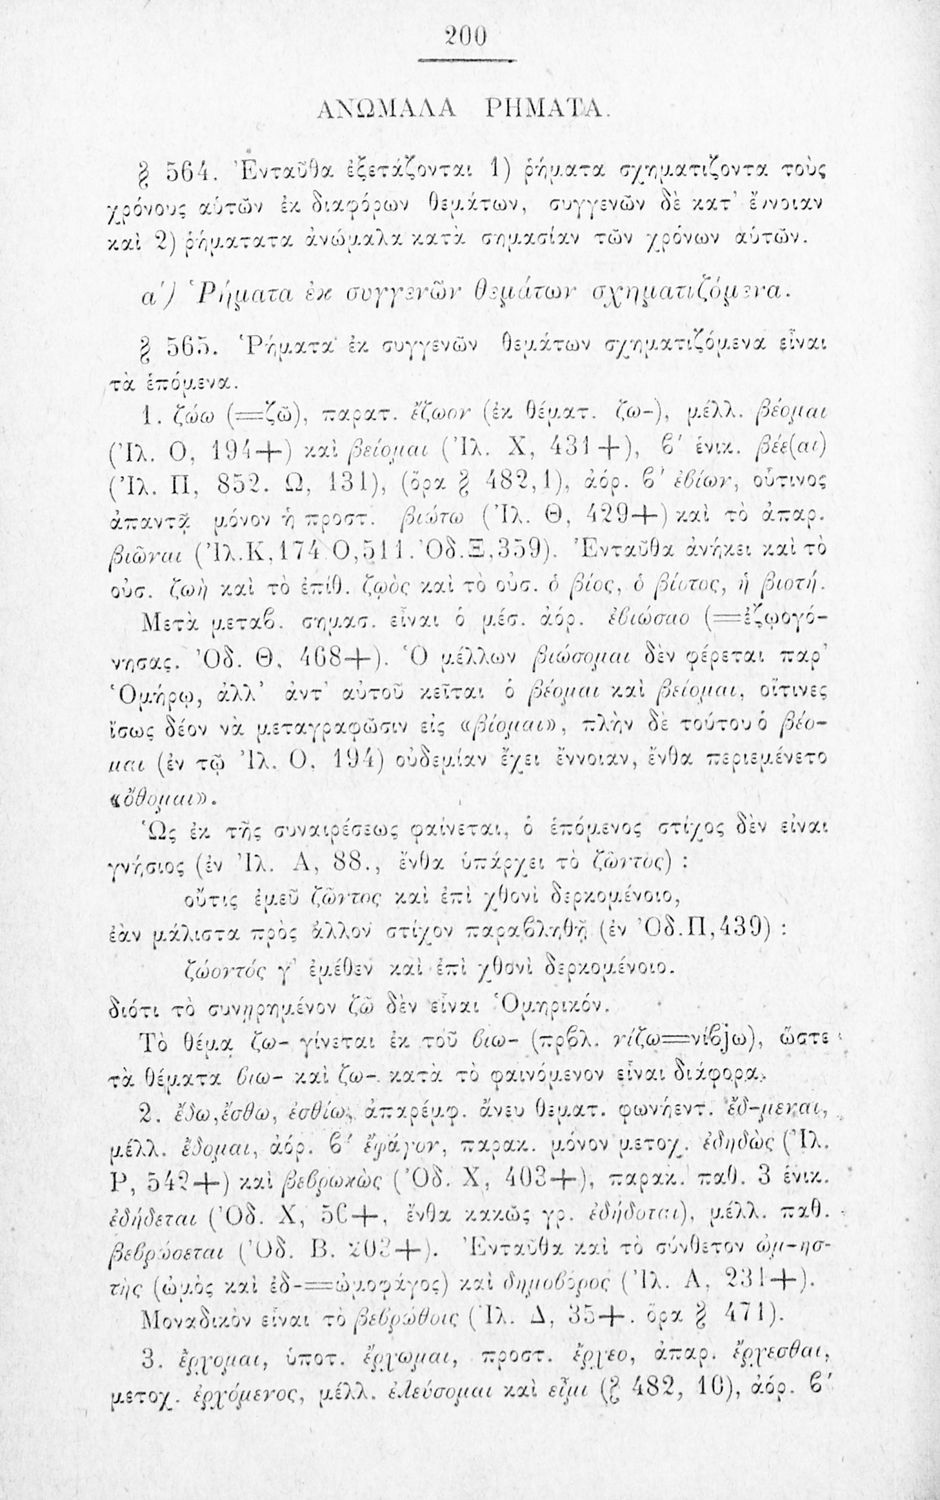 200
ΑΝΩΜΑΛΑ ΡΗΜΑΤΑ.
§ 564. Ἐνταῦθα ἐξετάζονται 1) ῥήματα σχηματίζοντα τοὺς
χρόνους αὐτῶν ἐκ διαφόρων θεμάτων, συγγενῶν δὲ κατ' ἔννοιαν
καὶ 2) ῥήματατα ἀνώμαλα κατὰ σημασίαν τῶν χρόνων αὐτῶν.
α΄) Ῥήματα ἐκ συγγενῶν θεμάτων σχηματιζόμενα.
§ 565. Ῥήματα ἐκ συγγενῶν θεμάτων σχηματιζόμενα εἶναι
τὰ ἑπόμενα.
1. ζώω (=ζῶ), παρατ. ἔζωον (ἐκ θέματ. ζω-), μέλλ. βέομαι
(Ἰλ. Ο, 194+) καὶ βείομαι (Ἰλ. Χ, 431+), β΄ ἑνικ. βέε(αι)
(Ἰλ. Π, 852. Ω, 131), (ὅρα § 482,1), ἀόρ. β΄ ἐβίων, οὗτινος
ἀπαντᾷ μόνον ἡ προστ. βιώτω (Ἰλ. Θ, 429+) καὶ τὸ ἀπαρ.
βιῶναι (Ἰλ.Κ,174 Ο,511. Ὀδ.Ξ,359). Ἐνταῦθα ἀνήκει καὶ τὸ
οὐσ. ζωὴ καὶ τὸ ἐπίθ. ζῳὸς καὶ τὸ οὐσ. ὁ βίος, ὁ βίοτος, ἡ βιοτή.
Μετὰ μεταβ. σημασ. εἶναι ὁ μέσ. ἀόρ. ἐβιώσαο (=ἐζῳογό-
νησας. Ὀδ. Θ, 468+). Ὁ μέλλων βιώσομαι δὲν φέρεται παρ'
Ὁμήρῳ, ἀλλ' ἀντ' αὐτοῦ κεῖται ὁ βέομαι καὶ βείομαι, οἵτινες
ἴσως δέον νὰ μεταγραφῶσιν εἰς «βίομαι», πλὴν δὲ τούτου ὁ βέο-
μαι (ἐν τῷ Ἰλ. Ο, 194) οὐδεμίαν ἔχει ἔννοιαν, ἔνθα περιεμένετο
«ὄθομαι».
Ὡς ἐκ τῆς συναιρέσεως φαίνεται, ὁ ἑπόμενος στίχος δὲν εἶναι
γνήσιος (ἐν Ἰλ. Α, 88., ἔνθα ὑπάρχει τὸ ζῶντος) :
οὔτις ἐμεῦ ζῶντος καὶ ἐπὶ χθονὶ δερκομένοιο,
ἐὰν μάλιστα πρὸς ἄλλον στίχον παραβληθῇ (ἐν Ὀδ.Π,439) :
ζώοντός γ' ἐμέθεν καὶ ἐπὶ χθονὶ δερκομένοιο.
διότι τὸ συνῃρημένον ζῶ δὲν εἶναι Ὁμηρικόν.
Τὸ θέμα ζω- γίνεται ἐκ τοῦ βιω- (πρβλ. νίζω=νίβjω), ὥστε
τὰ θέματα βιω- καὶ ζω- κατὰ τὸ φαινόμενον εἶναι διάφορα.
2. ἔδω, ἔσθω, ἐσθίω, ἀπαρέμφ. ἄνευ θεματ. φωνήεντ. ἔδ-μεναι,
μέλλ. ἔδομαι, ἀόρ. β΄ ἔφαγον, παρακ. μόνον μετοχ. ἐδηδὼς (Ἰλ.
Ρ, 542+) καὶ βεβρωκὼς (Ὀδ. Χ, 403+), παρακ. παθ. 3 ἑνικ.
ἐδήδεται (Ὀδ. Χ, 56+, ἔνθα κακῶς γρ. ἐδήδοται), μέλλ. παθ.
βεβρώσεται (Ὀδ. Β. 203+). Ἐνταῦθα καὶ τὸ σύνθετον ὠμ-ησ-
τὴς (ὠμὸς καὶ ἐδ-=ὠμοφάγος) καὶ δημοβόρος (Ἰλ. Α, 231+).
Μοναδικὸν εἶναι τὸ βεβρώθοις (Ἰλ. Δ, 35+. ὅρα § 471).
3. ἔρχομαι, ὑποτ. ἔρχωμαι, προστ. ἔρχεο, ἀπαρ. ἔρχεσθαι,
μετοχ. ἐρχόμενος, μέλλ. ἐλεύσομαι καὶ εἶμι (§ 482, 10), ἀόρ. β΄